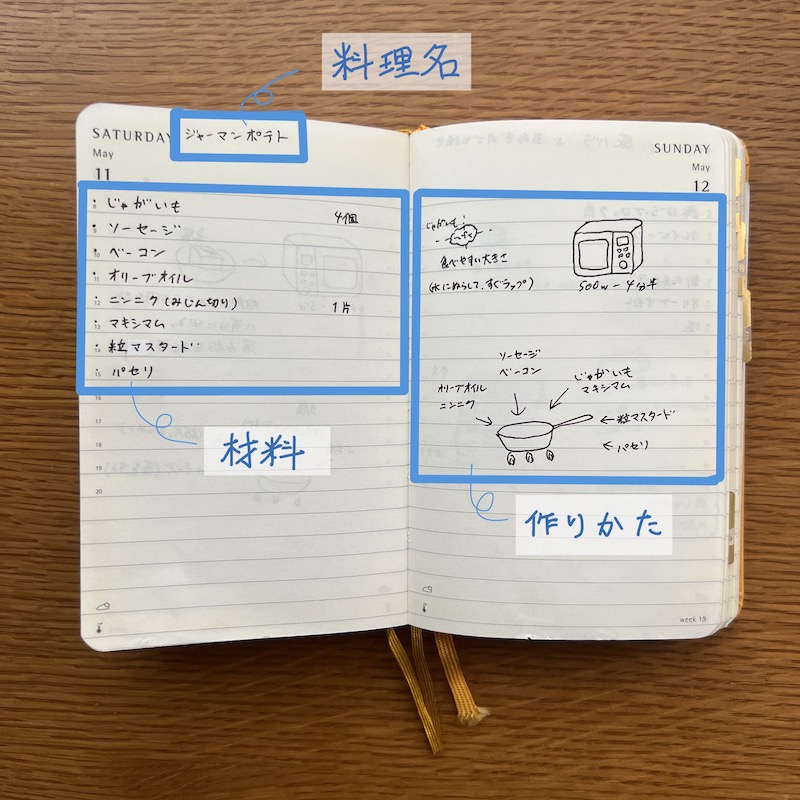 料理名
SATURDAY
ジャーマンポテト
May
11
じゃがいも 4個
ソーセージ
ベーコン
オリーブオイル
ニンニク(みじん切り) 1片
マキシマム
粒マスタード
パセリ
16
17
18
19
20
材料
SUNDAY
May
12
じゃがいも
食べやすい大きさ
(水にぬらして、すぐラップ)
500w - 4分半
ソーセージ
ベーコン
オリーブオイル
ニンニク
じゃがいも
マキシマム
粒マスタード
パセリ
作りかた
week 19